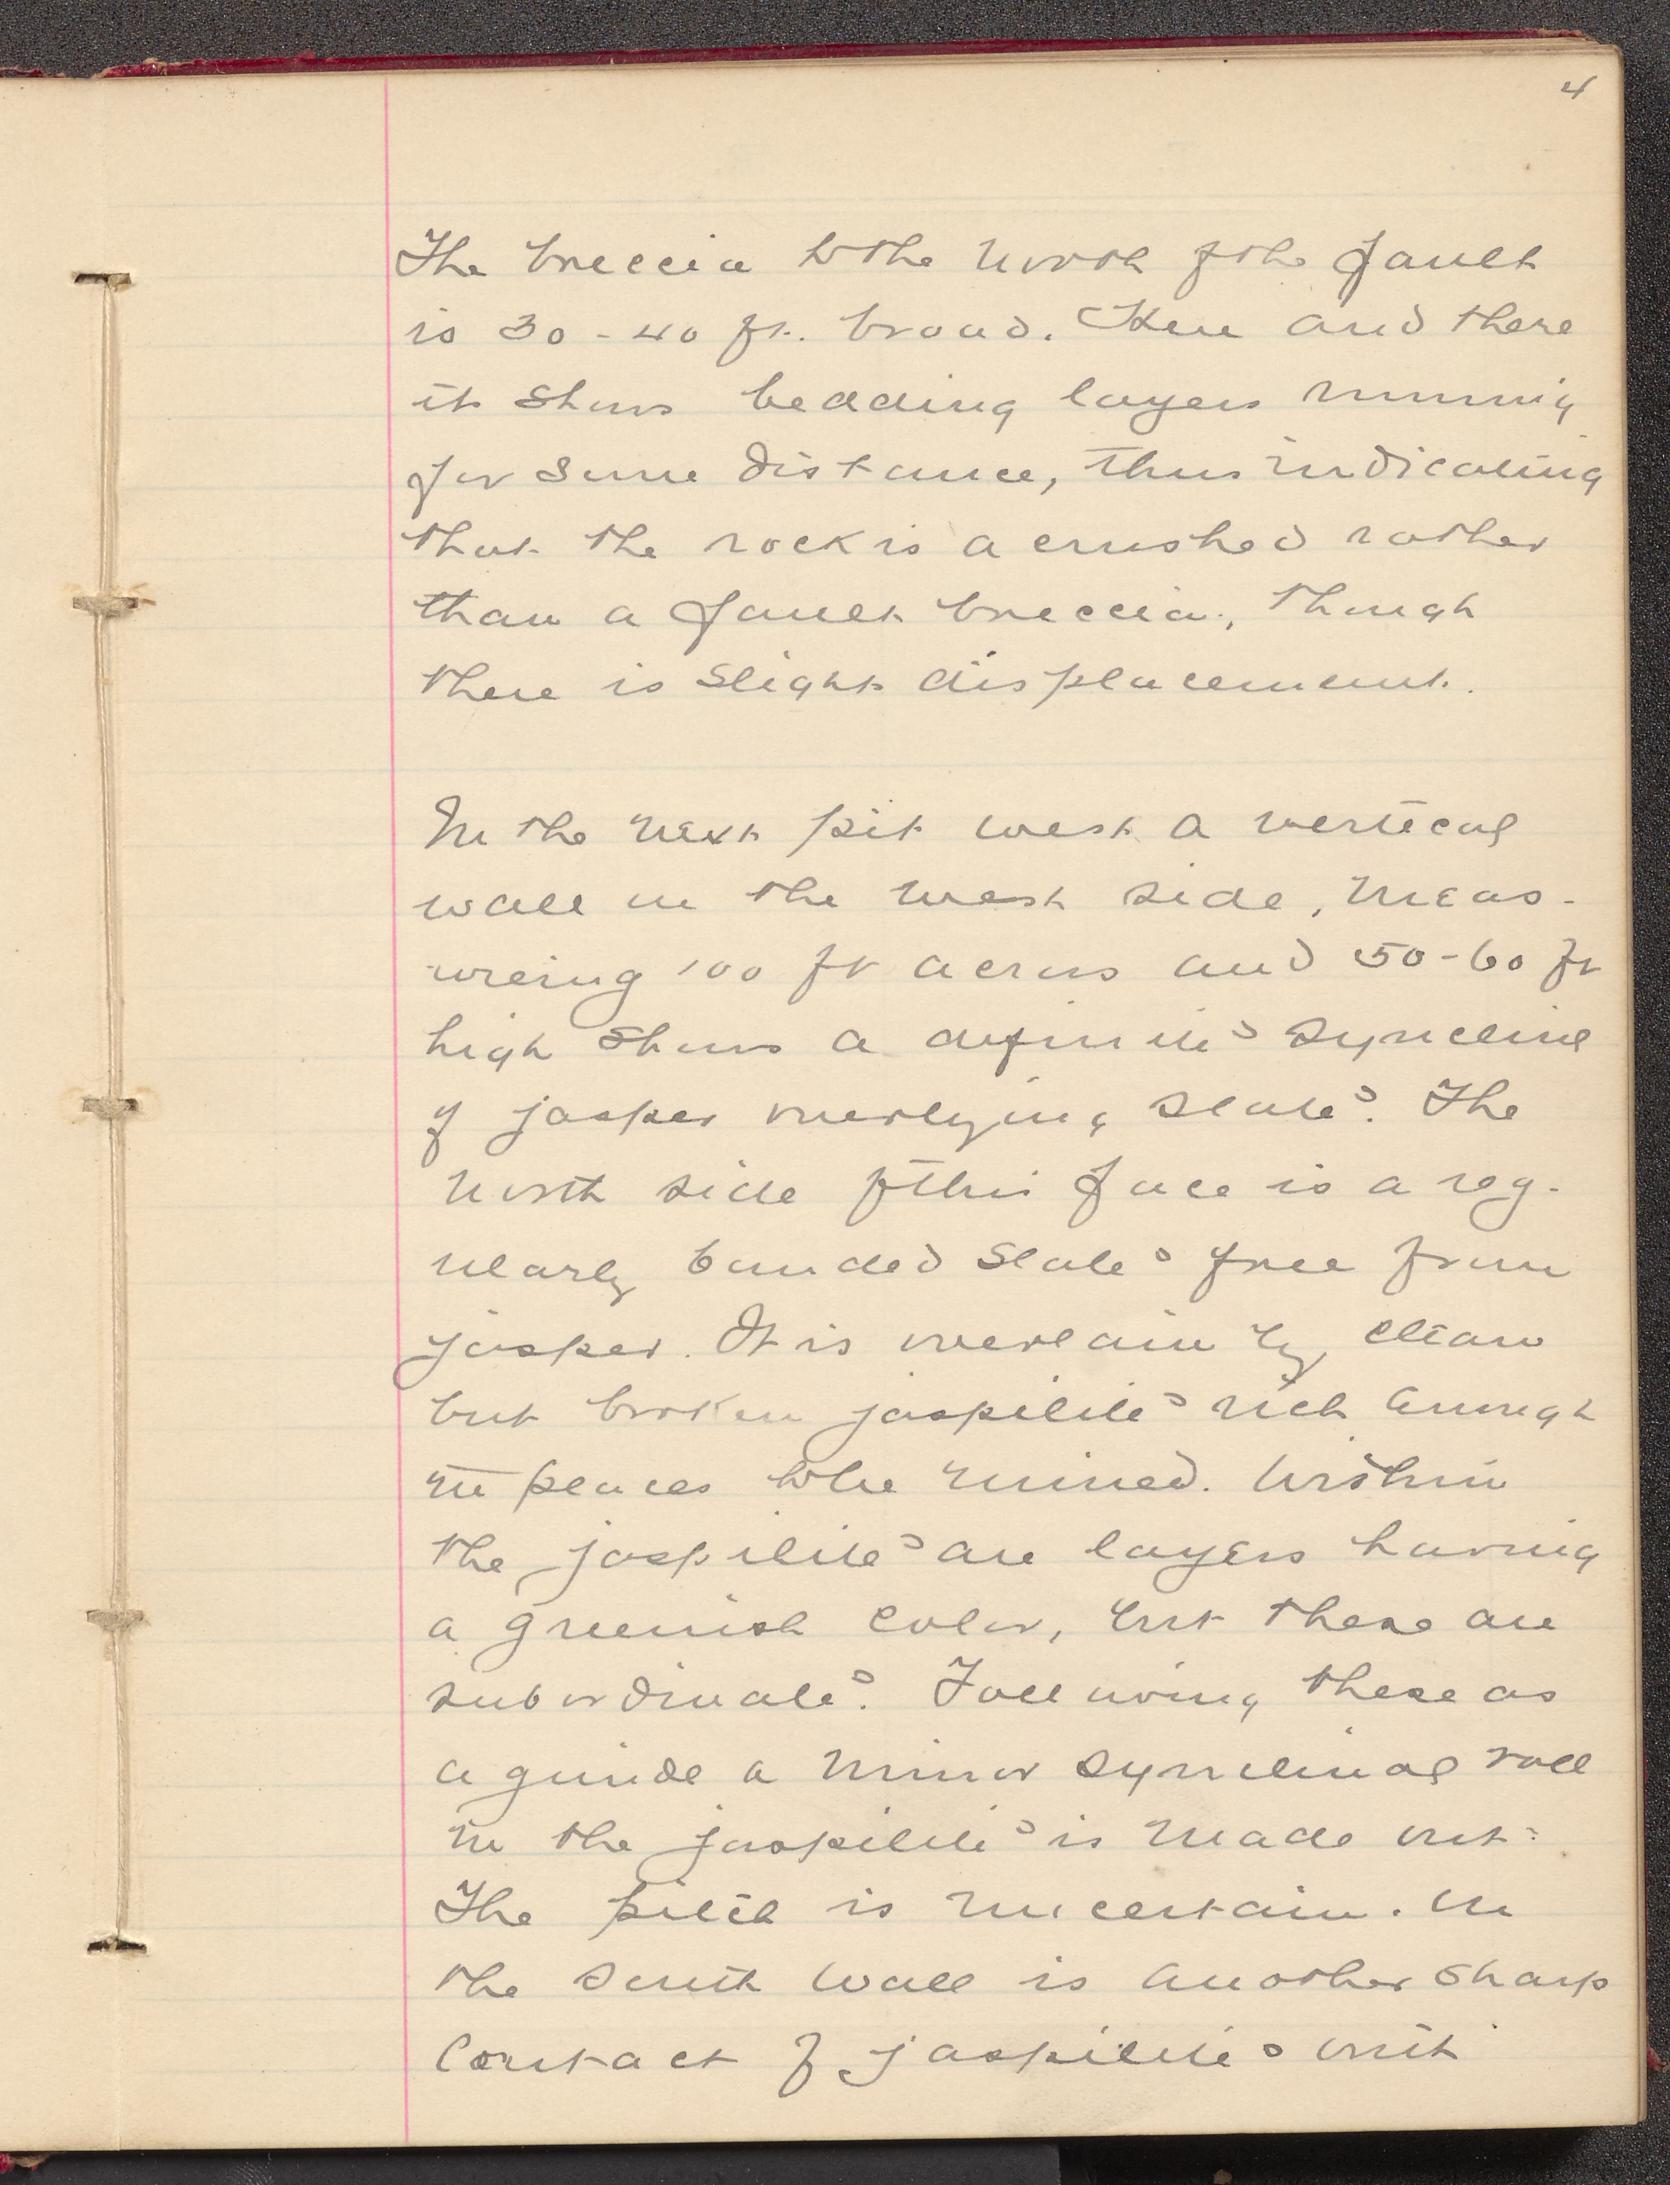 4
The breccia to the north of the fault
is 30-40 ft. broad. Here and there
it shows bedding layers running
for some distance, thus indicating
that the rock is a crushed rather
than a fault breccia, though
there is slight displacement.
In the next pit west a vertical
wall on the west side, meas-
ureing 100 ft across and 50-60 ft
high shows a definite syncline
of jasper overlying slate. The
north side of this face is a reg-
ularly banded slate free from
jasper. It is overlain by clean
but broken jaspilite rich enough
in places to be mined. Within
the jaspilite are layers having
a greenish color, but these are
subordinate. Following these as
a guide a minor synclinal roll
in the jaspilite is made out.
The pitch is uncertain. On
the south wall is another sharp
contact of jaspilite with